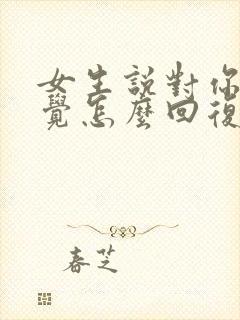 女生說對你
覺怎麼回復
春芝